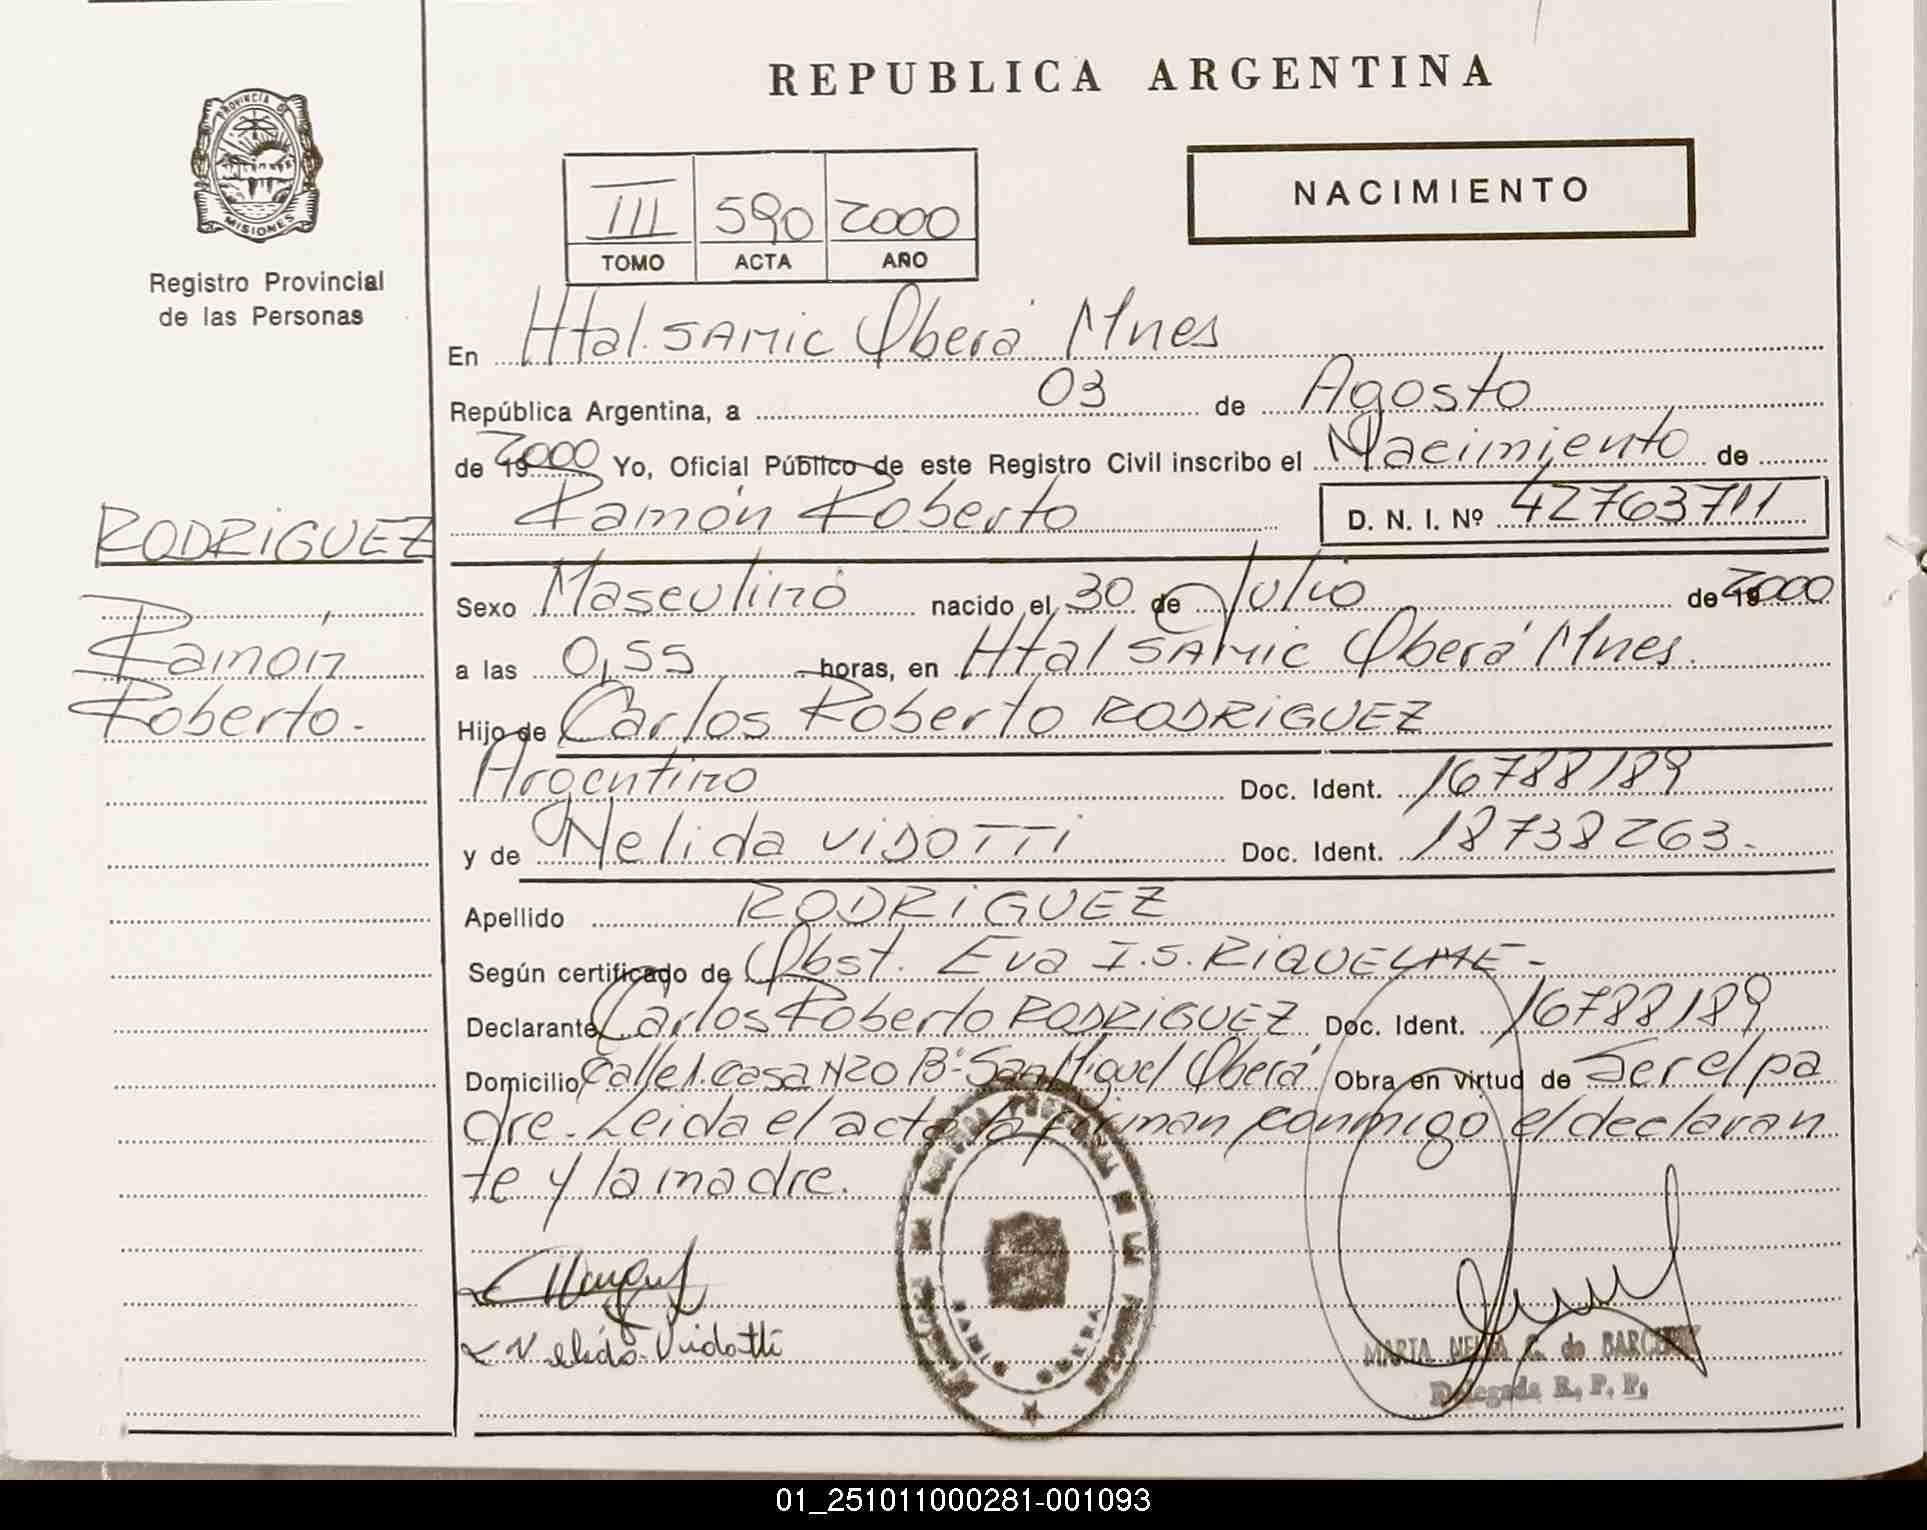 REPUBLICA ARGENTINA
PROVINCIA DE
MISIONES
Registro Provincial
de las Personas
III 590 2000
TOMO ACTA AÑO
NACIMIENTO
En Htal. SAMIC Oberá Mnes
República Argentina, a 03 de Agosto
de 19 2000 Yo, Oficial Público de este Registro Civil inscribo el Nacimiento de
Ramón Roberto D. N. I. Nº 42763711
RODRIGUEZ
Ramón
Roberto.-
Sexo Masculino nacido el 30 de Julio de 19 2000
a las 0,55 horas, en Htal SAMIC Oberá Mnes.
Hijo de Carlos Roberto RODRIGUEZ
Argentino Doc. Ident. 16788189
y de Nelida VIDOTTI Doc. Ident. 18738263.-
Apellido RODRIGUEZ
Según certificado de Obst. Eva I.S. RIQUELME-
Declarante Carlos Roberto RODRIGUEZ Doc. Ident. 16788189
Domicilio Calle 1. Casa N20 Bº San Miguel Oberá Obra en virtud de Ser el pa
dre. Leida el acta la firman conmigo el declaran
te y la madre.
Nelida Vidotti
MARTA C. de
Delegada R. P. P.
OBERA
01_251011000281-001093